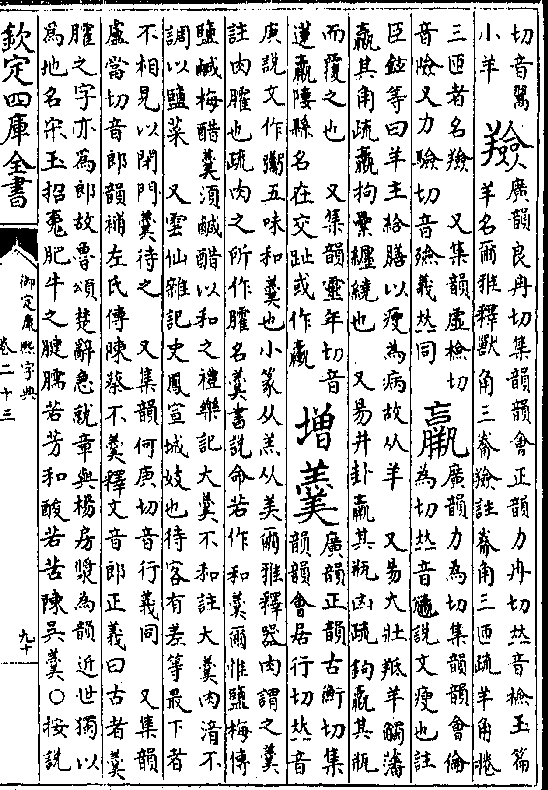 切音醫
小羊 羷 廣韻良冉切集韻韻會正韻力冉切𠀤音檢玉篇羊名爾雅釋獸角三觠羷註觠角三匝疏羊角捲
三匝者名羷 又集韻虛檢切音險又力驗切音殮義𠀤同 羸 廣韻力為切集韻韻會倫為切𠀤音㒍說文瘦也註
臣鉉等曰羊主給膳以瘦為病故从羊 又易大壯羝羊觸藩羸其角疏羸拘纍纏繞也 又易井卦羸其瓶凶疏鉤羸其瓶
而覆之也 又集韻靈年切音蓮羸𨻻縣名在交趾或作𦝠 增 羹 廣韻正韻古衡切集韻韻會居行切𠀤音
庚說文作𩱧五味和羹也小篆从羔从美爾雅釋器肉謂之羹註肉臛也疏肉之所作臛名羹書說命若作和羹爾惟鹽梅傳
鹽鹹梅醋羹須鹹醋以和之禮樂記大羹不和註大羹肉湆不調以鹽菜 又雲仙雜記史鳳宣城妓也待客有差等最下者
不相見以閉門羹待之 又集韻何庚切音行義同 又集韻盧當切音郎韻補左氏傳陳蔡不羹釋文音郎正義曰古者羹
臛之字亦為郎故魯頌楚辭急就章與楊房漿為韻近世獨以為地名宋玉招䰟肥牛之腱臑若芳和酸若苦陳吳羹○按說
欽定四庫全書
御定康熙字典
卷二十三
九十